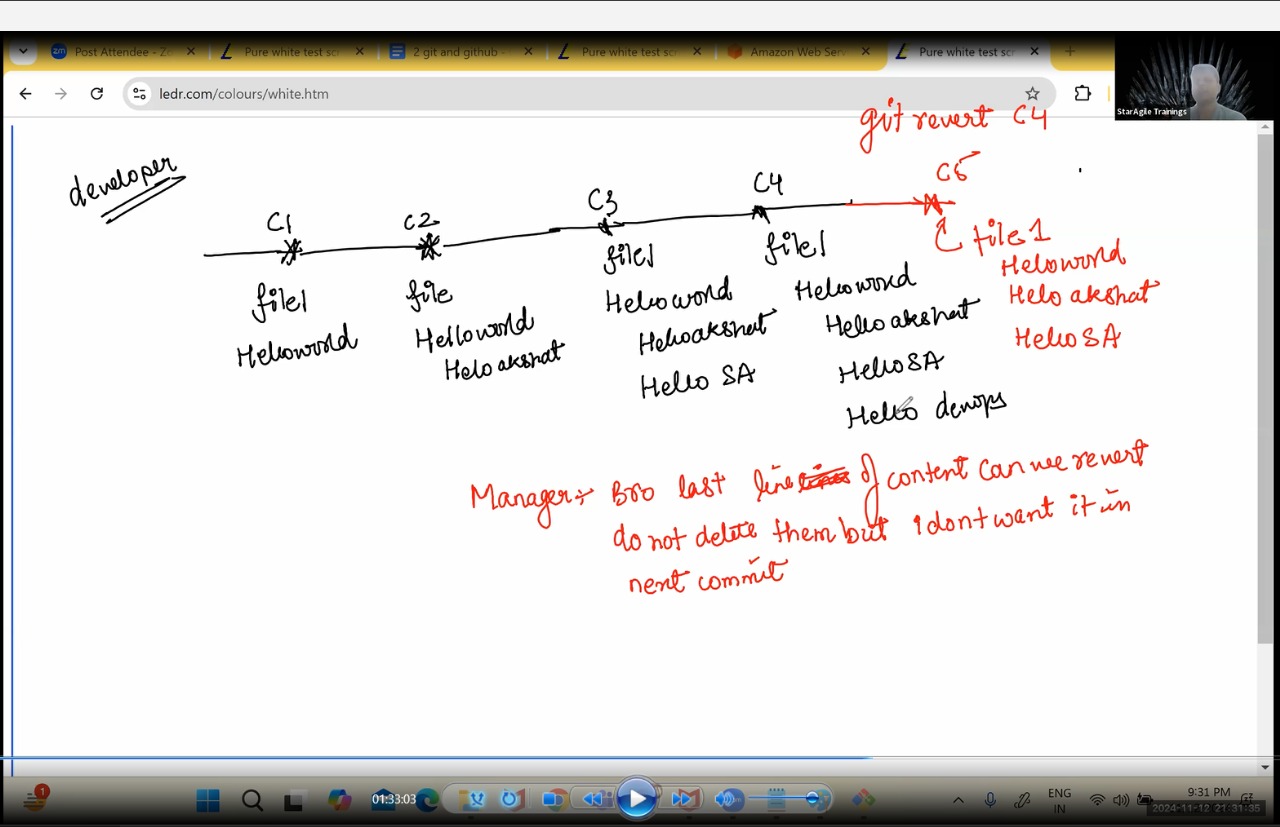 Post Attendee - Z
Pure white test scr
2 git and github -
Pure white test scr
Amazon Web Serv
Pure white test scr
ledr.com/colours/white.htm
StarAgile Trainings
git revert C4
developer
C1
C2
C3
C4
C5
file1
file
file1
file1
file1
Helloworld
Helloworld
Helo akshat
Helloworld
Helloakshat
Hello SA
Helloworld
Helloakshat
HelloSA
Hello devops
Heloworld
Helo akshat
HelloSA
Manager:- Bro last line of content can we revert
do not delete them but i dont want it in
next commit
01:33:03
1
ENG
IN
9:31 PM
2024-11-12 21:31:35